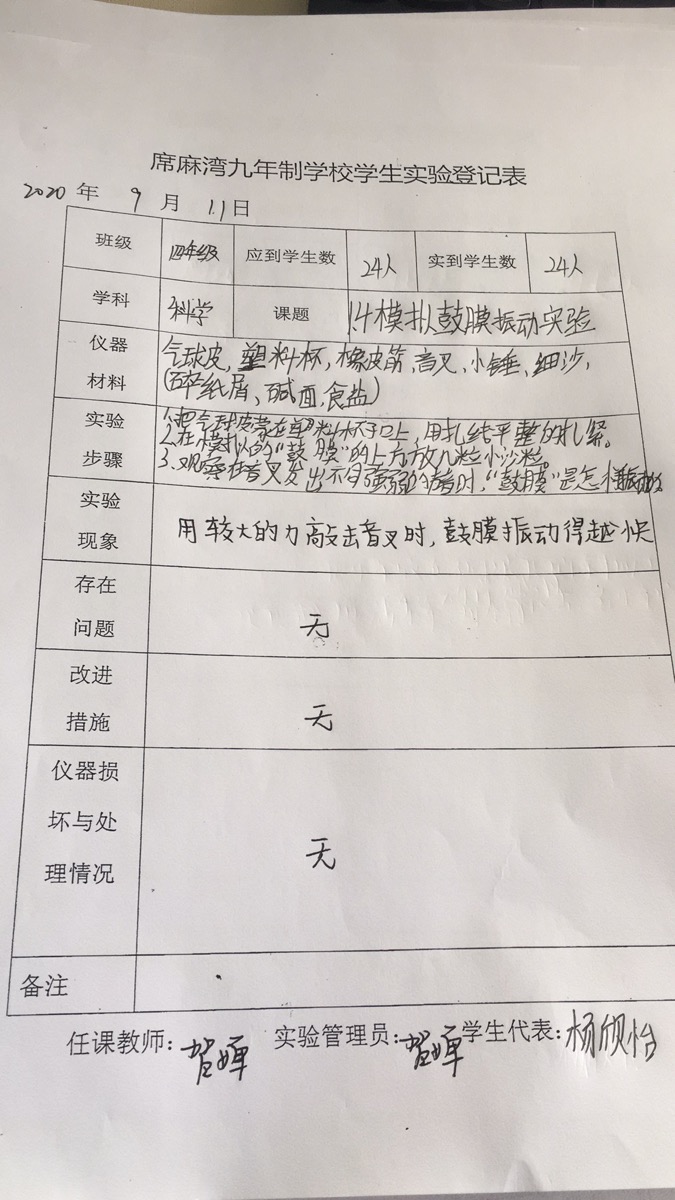 席麻湾九年制学校学生实验登记表
2020 年 9 月 11日
班级 四年级 应到学生数 24人 实到学生数 24人
学科 科学 课题 1.4模拟鼓膜振动实验
仪器 气球皮,塑料杯,橡皮筋,音叉,小锤、细沙,
材料 (碎纸屑、碱面,食盐)
实验 1、把气球皮蒙在塑料杯子口上,用扎线平整的扎紧。
2、在模拟的“鼓膜”的上方放几粒小沙粒。
步骤 3、观察在音叉发出不同强弱的声音时,“鼓膜”是怎样振动的
实验
现象 用较大的力敲击音叉时,鼓膜振动得越快
存在
问题 无
改进
措施 无
仪器损
坏与处
理情况 无
备注
任课教师: 贺婵 实验管理员: 贺婵 学生代表: 杨欣怡